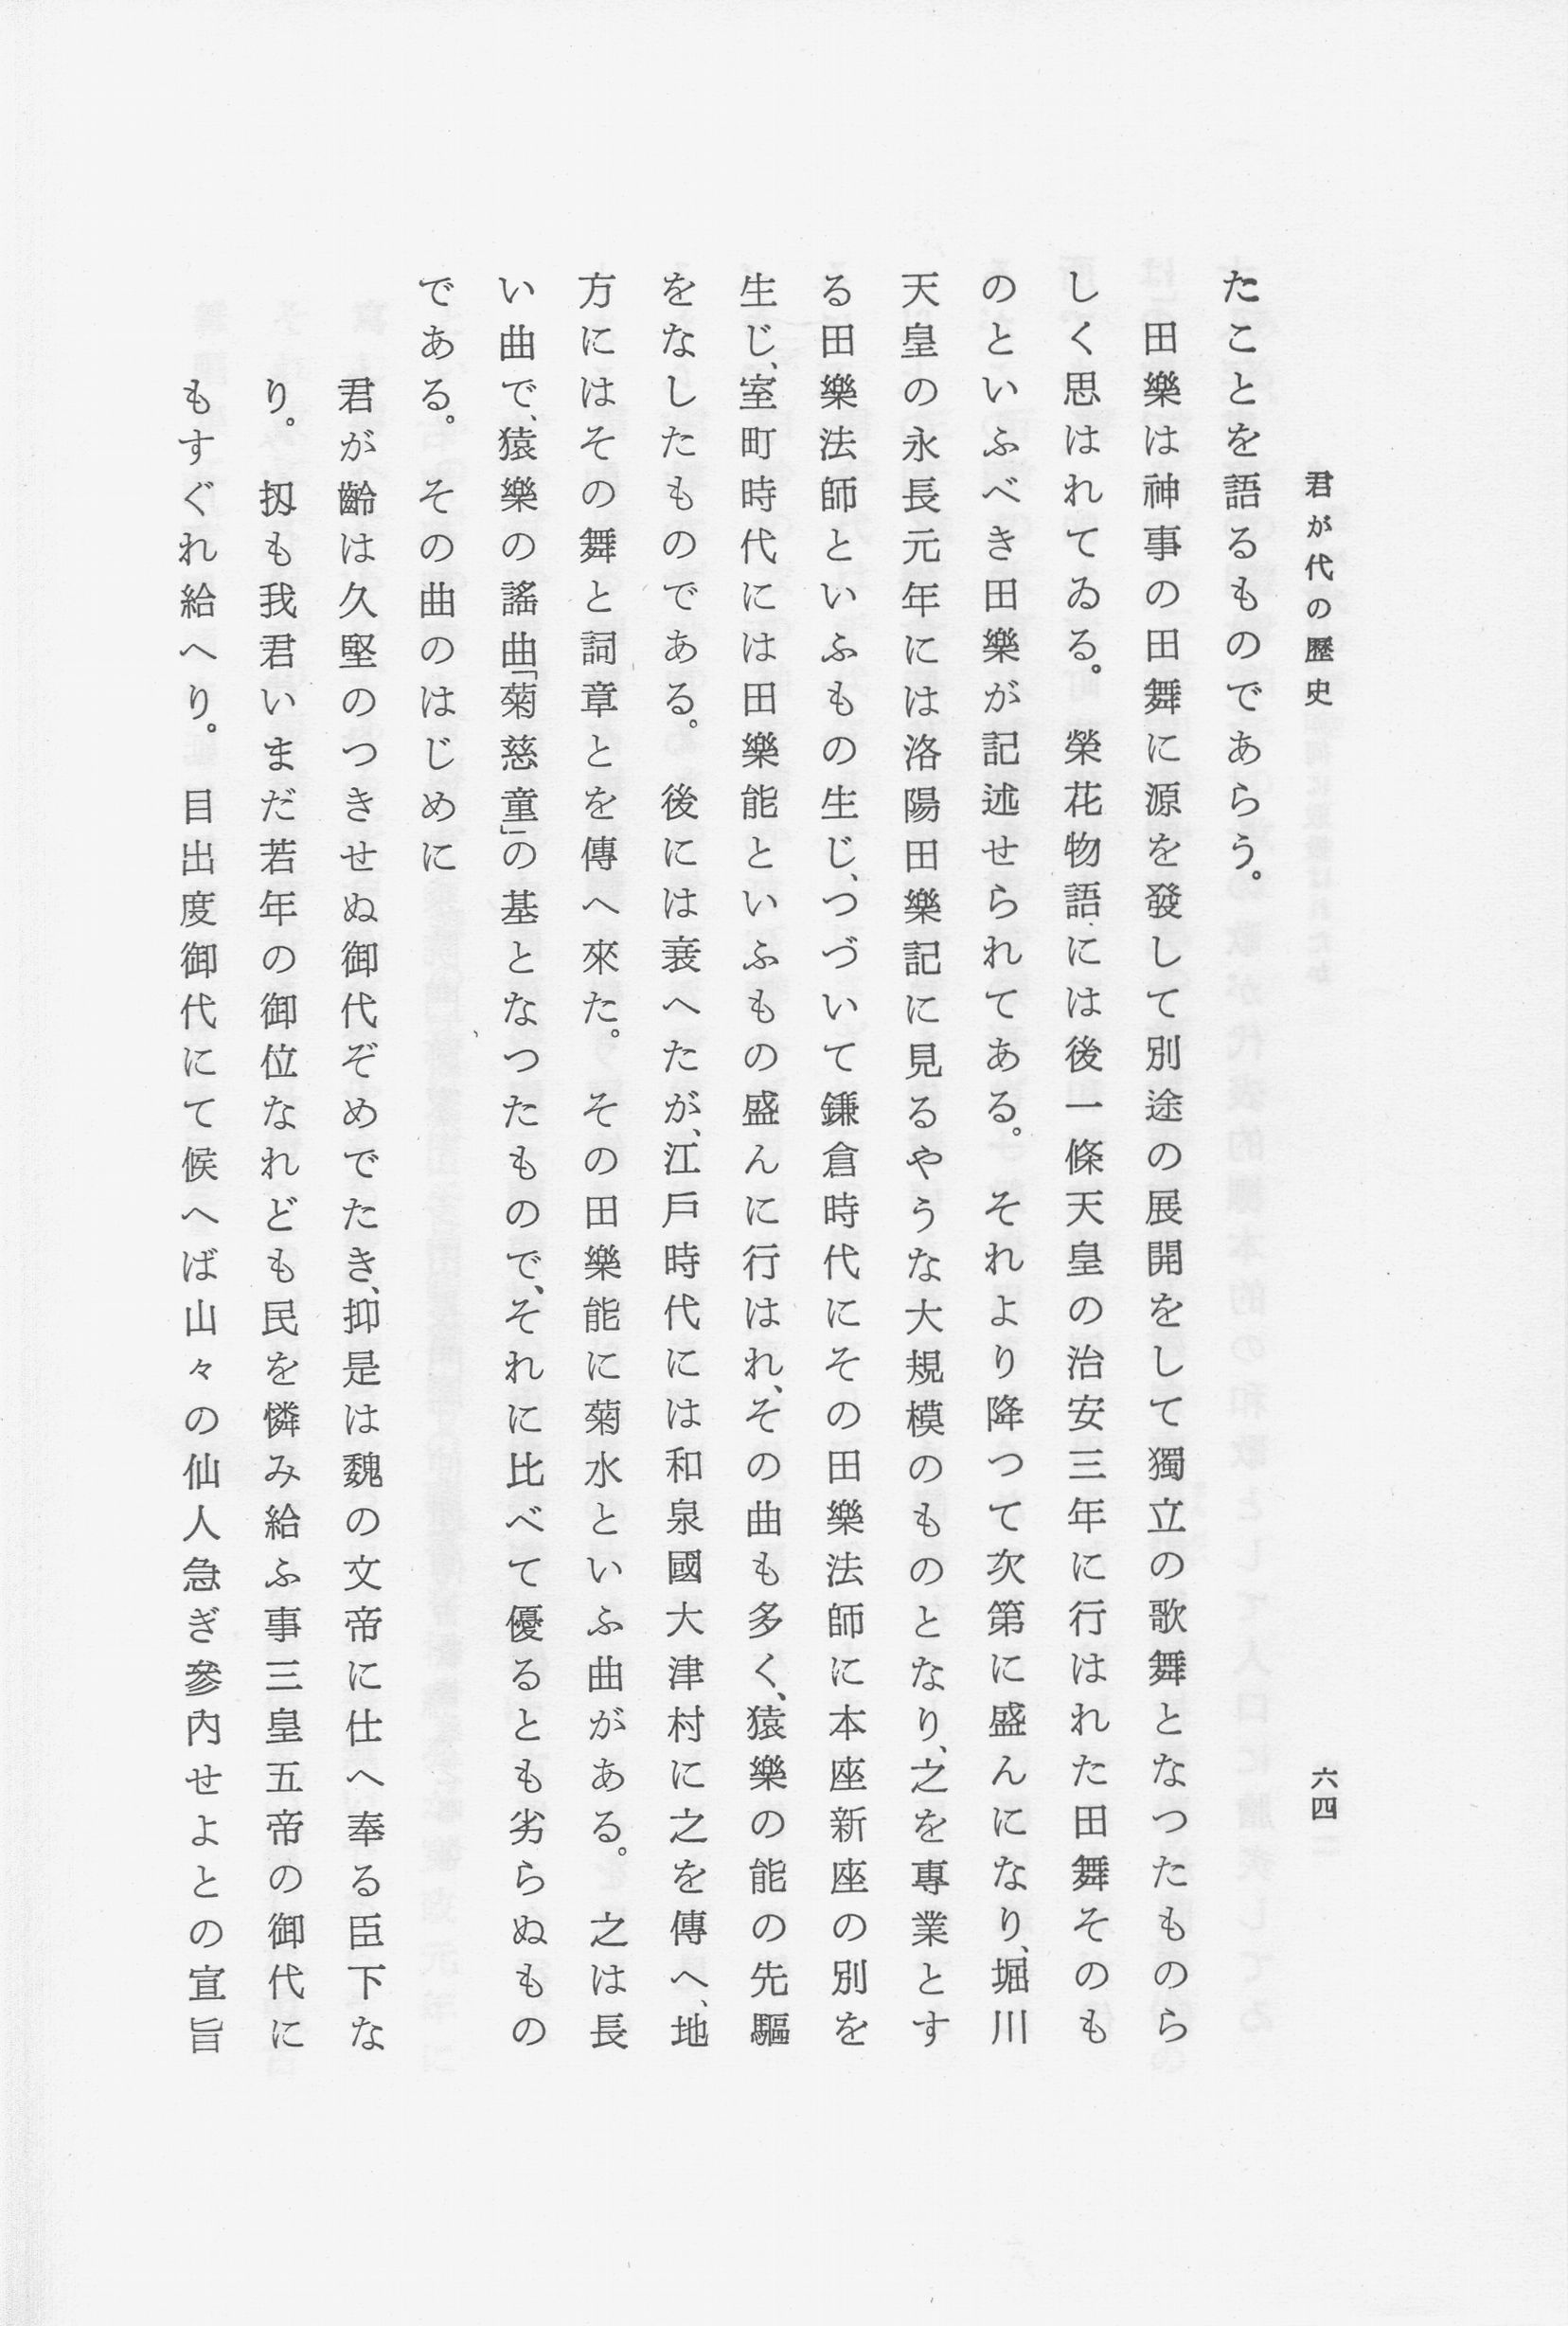 君が代の歷史
六四
たことを語るものであらう。
田樂は神事の田舞に源を發して別途の展開をして獨立の歌舞となつたものら
しく思はれてゐる。榮花物語には後一條天皇の治安三年に行はれた田舞そのも
のといふべき田樂が記述せられてある。それより降つて次第に盛んになり、堀川
天皇の永長元年には洛陽田樂記に見るやうな大規模のものとなり、之を專業とす
る田樂法師といふもの生じ、つづいて鎌倉時代にその田樂法師に本座新座の別を
生じ、室町時代には田樂能といふもの盛んに行はれ、その曲も多く、猿樂の能の先驅
をなしたものである。後には衰へたが、江戶時代には和泉國大津村に之を傳へ、地
方にはその舞と詞章とを傳へ來た。その田樂能に菊水といふ曲がある。之は長
い曲で、猿樂の謠曲「菊慈童」の基となつたもので、それに比べて優るとも劣らぬもの
である。その曲のはじめに
君が齡は久堅のつきせぬ御代ぞめでたき、抑是は魏の文帝に仕へ奉る臣下な
り。扨も我君いまだ若年の御位なれども民を憐み給ふ事三皇五帝の御代に
もすぐれ給へり。目出度御代にて候へば山々の仙人急ぎ參內せよとの宣旨